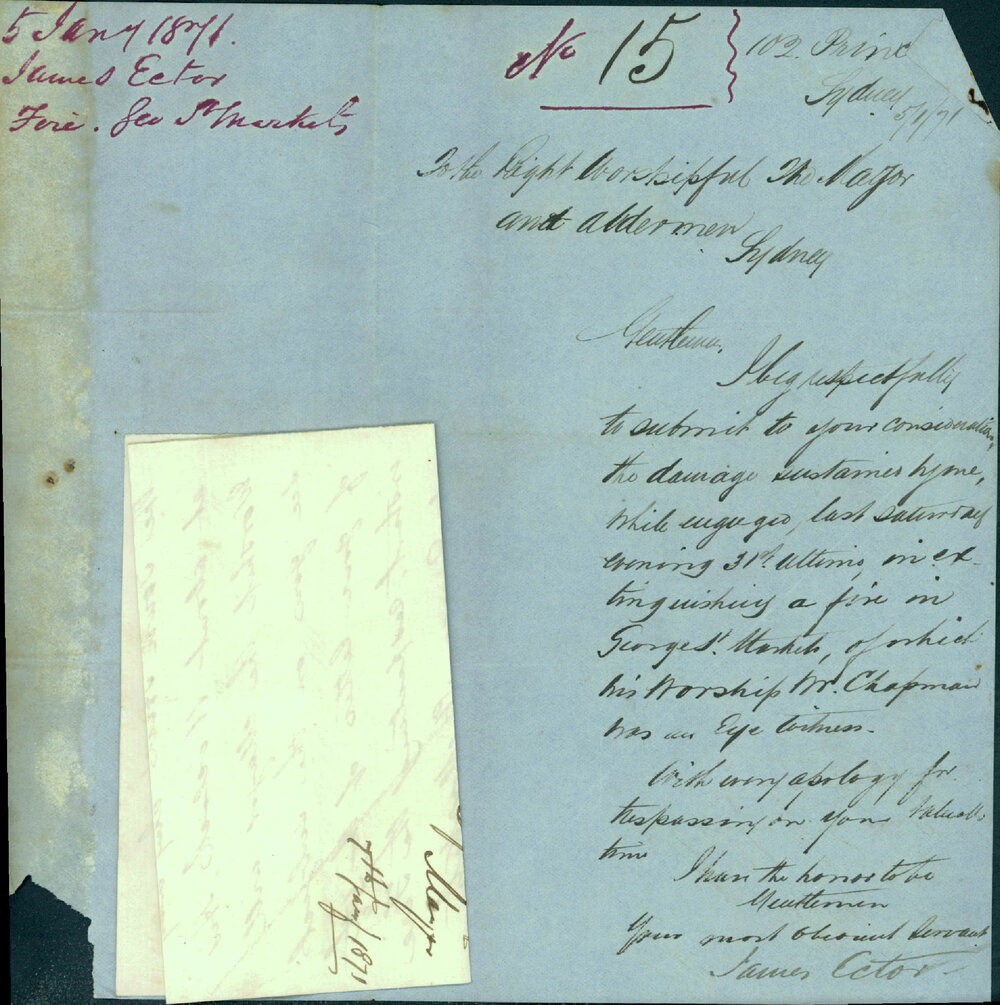 5 Jany 1871.
James Ector
Fire. Geo St Markets
No 15
102. Princ
Sydney
5/1/71
To the Right Worshipful The Mayor
and aldermen
Sydney
Gentlemen,
I beg respectfully
to submit to your consideration,
the damage sustained by me,
while engaged, last saturday
evening 31st. ultimo, in ex-
tinguishing a fire in
George St. Markets, of which
his Worship Mr. Chapman
was an Eye witness.
With every apology for
trespassing on your valuable
time
I have the honor to be
Gentlemen
Your most obedient Servant
James Ector
Mayor
7th Jany 1871